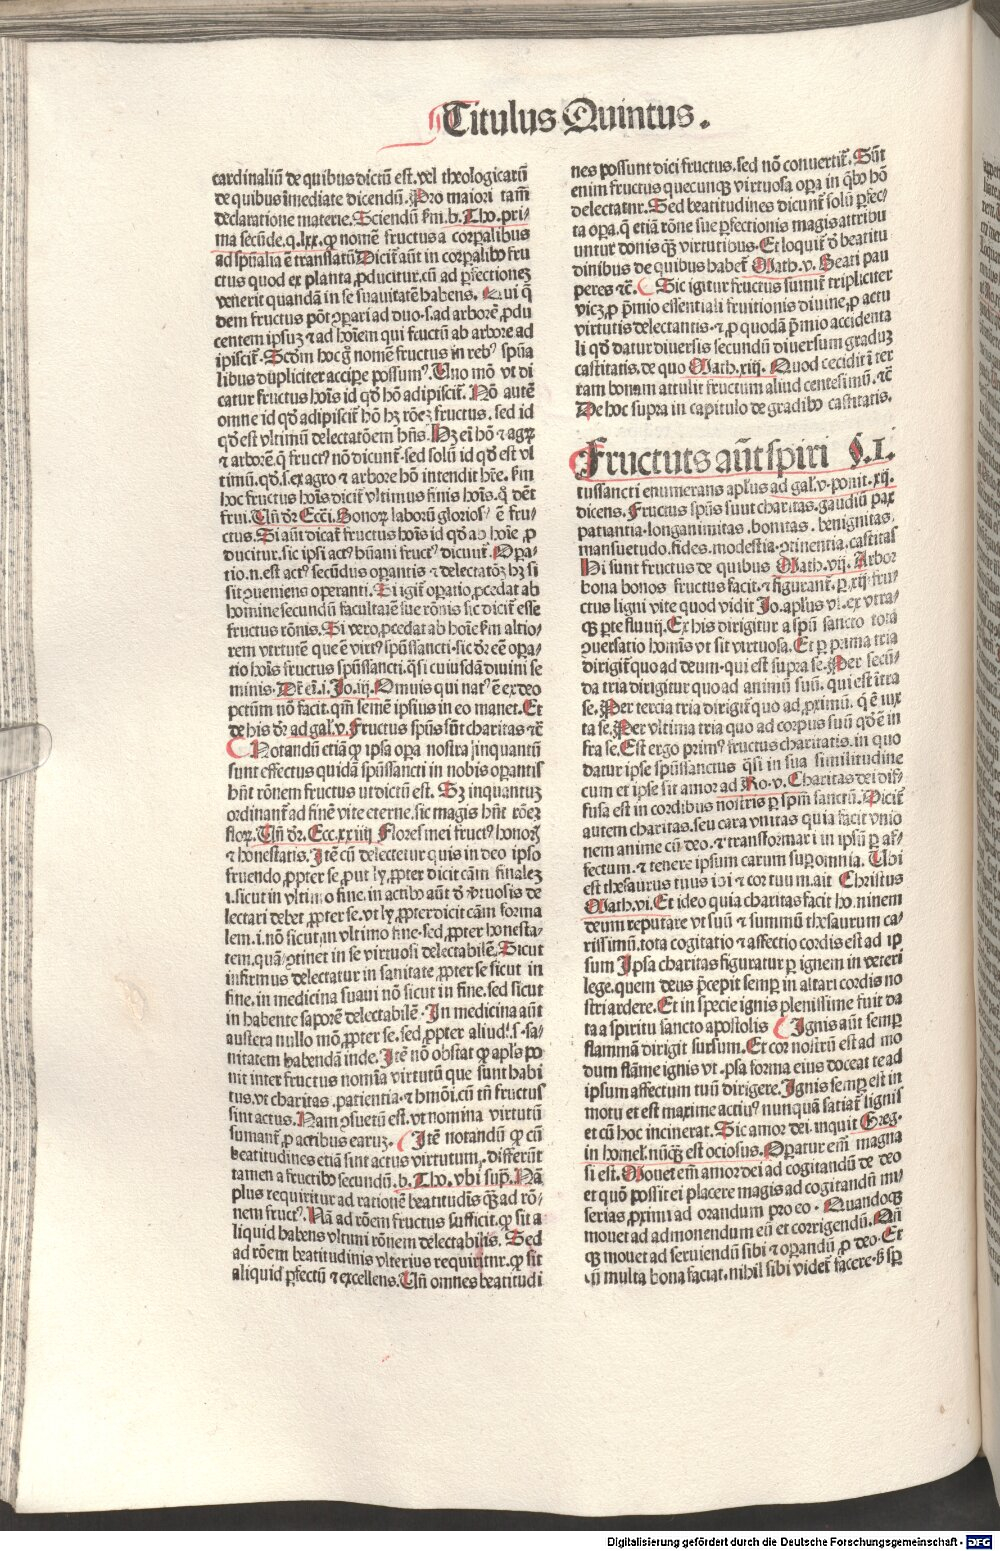 Titulus Quintus.
cardinaliū de quibus dictū est. vel theologicarū
de quibus īmediate dicendū. Pro maiori tamē
declaratione materie. Sciendū ẜm. b. Tho. pri-
ma secūde. q. lxx. ꝙ nomē fructus a corpalibus
ad spūalia ē translatū Dicit̄ aūt in corpalibꝰ fru
ctus quod ex planta ꝓducitur. cū ad ꝑfectionez
venerit quandā in se suauitatē habens. Qui q̄
dem fructus pōt ꝯpari ad duo. s. ad arborē ꝓdu
centem ipsuz ⁊ ad hoīem qui fructū ab arbore ad
ipiscit̄. Scdm hoc gͦ nomē fructus in rebꝰ spūa
libus dupliciter accipe possumꝰ. Uno mō vt di
catur fructus hoīs id qd̄ hō adipiscit̄. Nō autē
omne id qd̄ adipiscit̄ hō hꝫ rōez fructus. sed id
qd̄ est vltimū delectatōem hn̄s. Hꝫ eī hō ⁊ agꝝ
⁊ arborē. q̄ fructꝰ nō dicunt̄. sed solū id qd̄ est vl
timū. qd̄. s. ex agro ⁊ arbore hō intendit hr̄e. ẜm
hoc fructus hoīs dicit̄ vltimus finis hoīs. q̄ dēt
frui. Un̄ dr̄ Eccī. Bonoꝝ laborū gloriosꝰ ē fru-
ctus. Si aūt dicat̄ fructus hoīs id qd̄ ab hoīe ꝓ
ducitur. sic ipsi actꝰ hūani fructꝰ dicunt̄. Opa-
tio. n. est actꝰ secūdus opantis ⁊ delectatōꝫ hꝫ si
sit ꝯueniens operanti. Si igit̄ opatio ꝓcedat ab
homine secundū facultatē sue rōnis sic dicit̄ esse
fructus rōnis. Si vero ꝓcedat ab hoīe ẜm altio-
rem virtutē que ē virtꝰ spūssancti. sic dr̄ eē opa-
tio hoīs fructus spūssancti. q̄si cuiusdā diuini se
minis. Dr̄ eī. i. Jo. iij. Omnis qui natꝰ ē ex deo
pctūm nō facit. qm̄ semē ipsius in eo manet. Et
de his dr̄ ad gal. v. Fructus spūs sūt charitas ⁊c̄
Notandū etiā ꝙ ipsa opa nostra inquantū
sunt effectus quidā spūssancti in nobis opantis
hn̄t rōnem fructus vt dictū est. Sꝫ inquantuz
ordinant̄ ad finē vite eterne. sic magis hn̄t rōez
floꝝ. Un̄ dr̄. Ecc. xxiiij Flores mei fructꝰ honoꝝ
⁊ honestatis. Itē cū delectetur quis in deo ipso
fruendo ꝓpter se. put ly ꝓpter dicit cām finalez
.i. sicut in vltimo fine. in actibꝰ aūt ꝟtuosis de
lectari debet ꝓpter se. vt ly ꝓpter dicit cām forma
lem. i. nō sicut in vltimo fine. sed ꝓpter honesta-
tem. quā ꝯtinet in se virtuosi delectabilē. Sicut
infirmus delectatur in sanitate ꝓpter se sicut in
fine. in medicina suaui nō sicut in fine. sed sicut
in habente saporē delectabilē. In medicina aūt
austera nullo mō ꝓpter se. sed ꝓpter aliud. s. sa-
nitatem habendā inde. Itē nō obstat ꝙ apl̄s po
nit inter fructus nomīa virtutū que sunt habi
tus. vt charitas. patientia. ⁊ hmōi. cū tn̄ fructus
sint actus. Nam ꝯsuetū est. vt nomina virtutū
sumant̄ ꝓ actibus earuz. Itē notandū ꝙ cū
beatitudines etiā sint actus virtutum. differūt
tamen a fructibꝰ secundū. b. Tho. vbi supͣ. Nā
plus requiritur ad rationē beatitudīs qꝫ ad rō-
nem fructꝰ. Nā ad rōem fructus sufficit. ꝙ sit a
liquid habens vltimi rōnem delectabilis. Sed
ad rōem beatitudinis vlterius requirit̄. ꝙ sit
aliquid ꝑfectū ⁊ excellens. Un̄ omnes beatitudi
nes possunt dici fructus. sed nō conuertit̄. Sūt
enim fructus quecunqꝫ virtuosa opa in qͥbꝰ hō
delectatur. Sed beatitudines dicunt̄ solū ꝑfec-
ta opa. q̄ etiā rōne sue ꝑfectionis magis attribu
untur donis qꝫ virtutibus. Et loquit̄ ð beatitu
dinibus de quibus habet̄ Math. v. Beati pau
peres ⁊c̄. Sic igitur fructus sumit̄ tripliciter
vicꝫ. ꝓ p̄mio essentiali fruitionis diuine. ꝓ actu
virtutis delectantis. ⁊ ꝓ quodā p̄mio accidenta
li qd̄ datur diuersis secundū diuersum graduꝫ
castitatis. de quo Math. xiij. Quod cecidit ī ter
ram bonam attulit fructum aliud centesimū. ⁊c̄
De hoc supra in capitulo de gradibꝰ castitatis.
Fructus aūt spiri §. I.
tussancti enumerans apl̄us ad gal. v. ponit. xij.
dicens. Fructus spūs sunt charitas. gaudiū pax
patiantia. longanimitas. bonitas. benignitas.
mansuetudo. fides. modestia. ꝯtinentia. castitas
Hi sunt fructus de quibus Math. vij. Arbor
bona bonos fructus facit. ⁊ figurant̄. ꝑ. xij fru-
ctus ligni vite quod vidit Jo. apl̄us vl. ex vtra-
qꝫ ꝑte fluuij. Ex his dirigitur a spū sancto tota
ꝯuersatio homīs vt sit virtuosa. Et ꝑ prima tria
dirigit̄ quo ad deum. qui est supra se. Per secū-
da tria dirigitur quo ad animū suū. qui est īfra
se. Per tercia tria dirigit̄ quo ad ꝓximū. q̄ ē iux
ta se. Per vltima tria quo ad corpus suū qd̄ ē in
fra se. Est ergo primꝰ fructus charitatis. in quo
datur ipse spūssanctus q̄si in sua similitudine
cum et ipse sit amor ad Ro. v. Charitas dei dif-
fusa est in cordibus nostris ꝑ spm̄ sanctū. Dicit̄
autem charitas. seu cara vnitas quia facit vnio
nem anime cū deo. ⁊ transformari in ipsū ꝑ af-
fectum. ⁊ tenere ipsum carum suꝑ omnia. Ubi
est thesaurus tuus ibi ⁊ cor tuum. ait Christus
Math. vi. Et ideo quia charitas facit hominem
deum reputare vt suū ⁊ summū thesaurum ca-
rissimū. tota cogitatio ⁊ affectio cordis est ad ip
sum Ipsa charitas figuratur ꝑ ignem in veteri
lege. quem deus p̄cepit semꝑ in altari cordis no
stri ardere. Et in specie ignis plenissime fuit da
ta a spiritu sancto apostolis Ignis aūt semꝑ
flammā dirigit sursum. Et cor nostrū est ad mo
dum flāme ignis vt ipsa forma eius doceat te ad
ipsum affectum tuū dirigere. Ignis semꝑ est in
motu et est maxime actiuꝰ nunquā satiat̄ lignis
et cū hoc incinerat. Sic amor dei. inquit Greg.
in homel. nūqꝫ est ociosus. Opatur em̄ magna
si est. Mouet em̄ amor dei ad cogitandū de deo
et quō possit ei placere magis ad cogitandū mi
serias ꝓximi ad orandum pro eo. Quandoqꝫ
mouet ad admonendum eū et corrigendū. Qn̄
qꝫ mouet ad seruiendū sibi et opandū ꝓ deo. Et
qū multa bona faciat. nihil sibi videt̄ facere. ẜ sꝑ
Digitalisierung gefördert durch die Deutsche Forschungsgemeinschaft - DFG